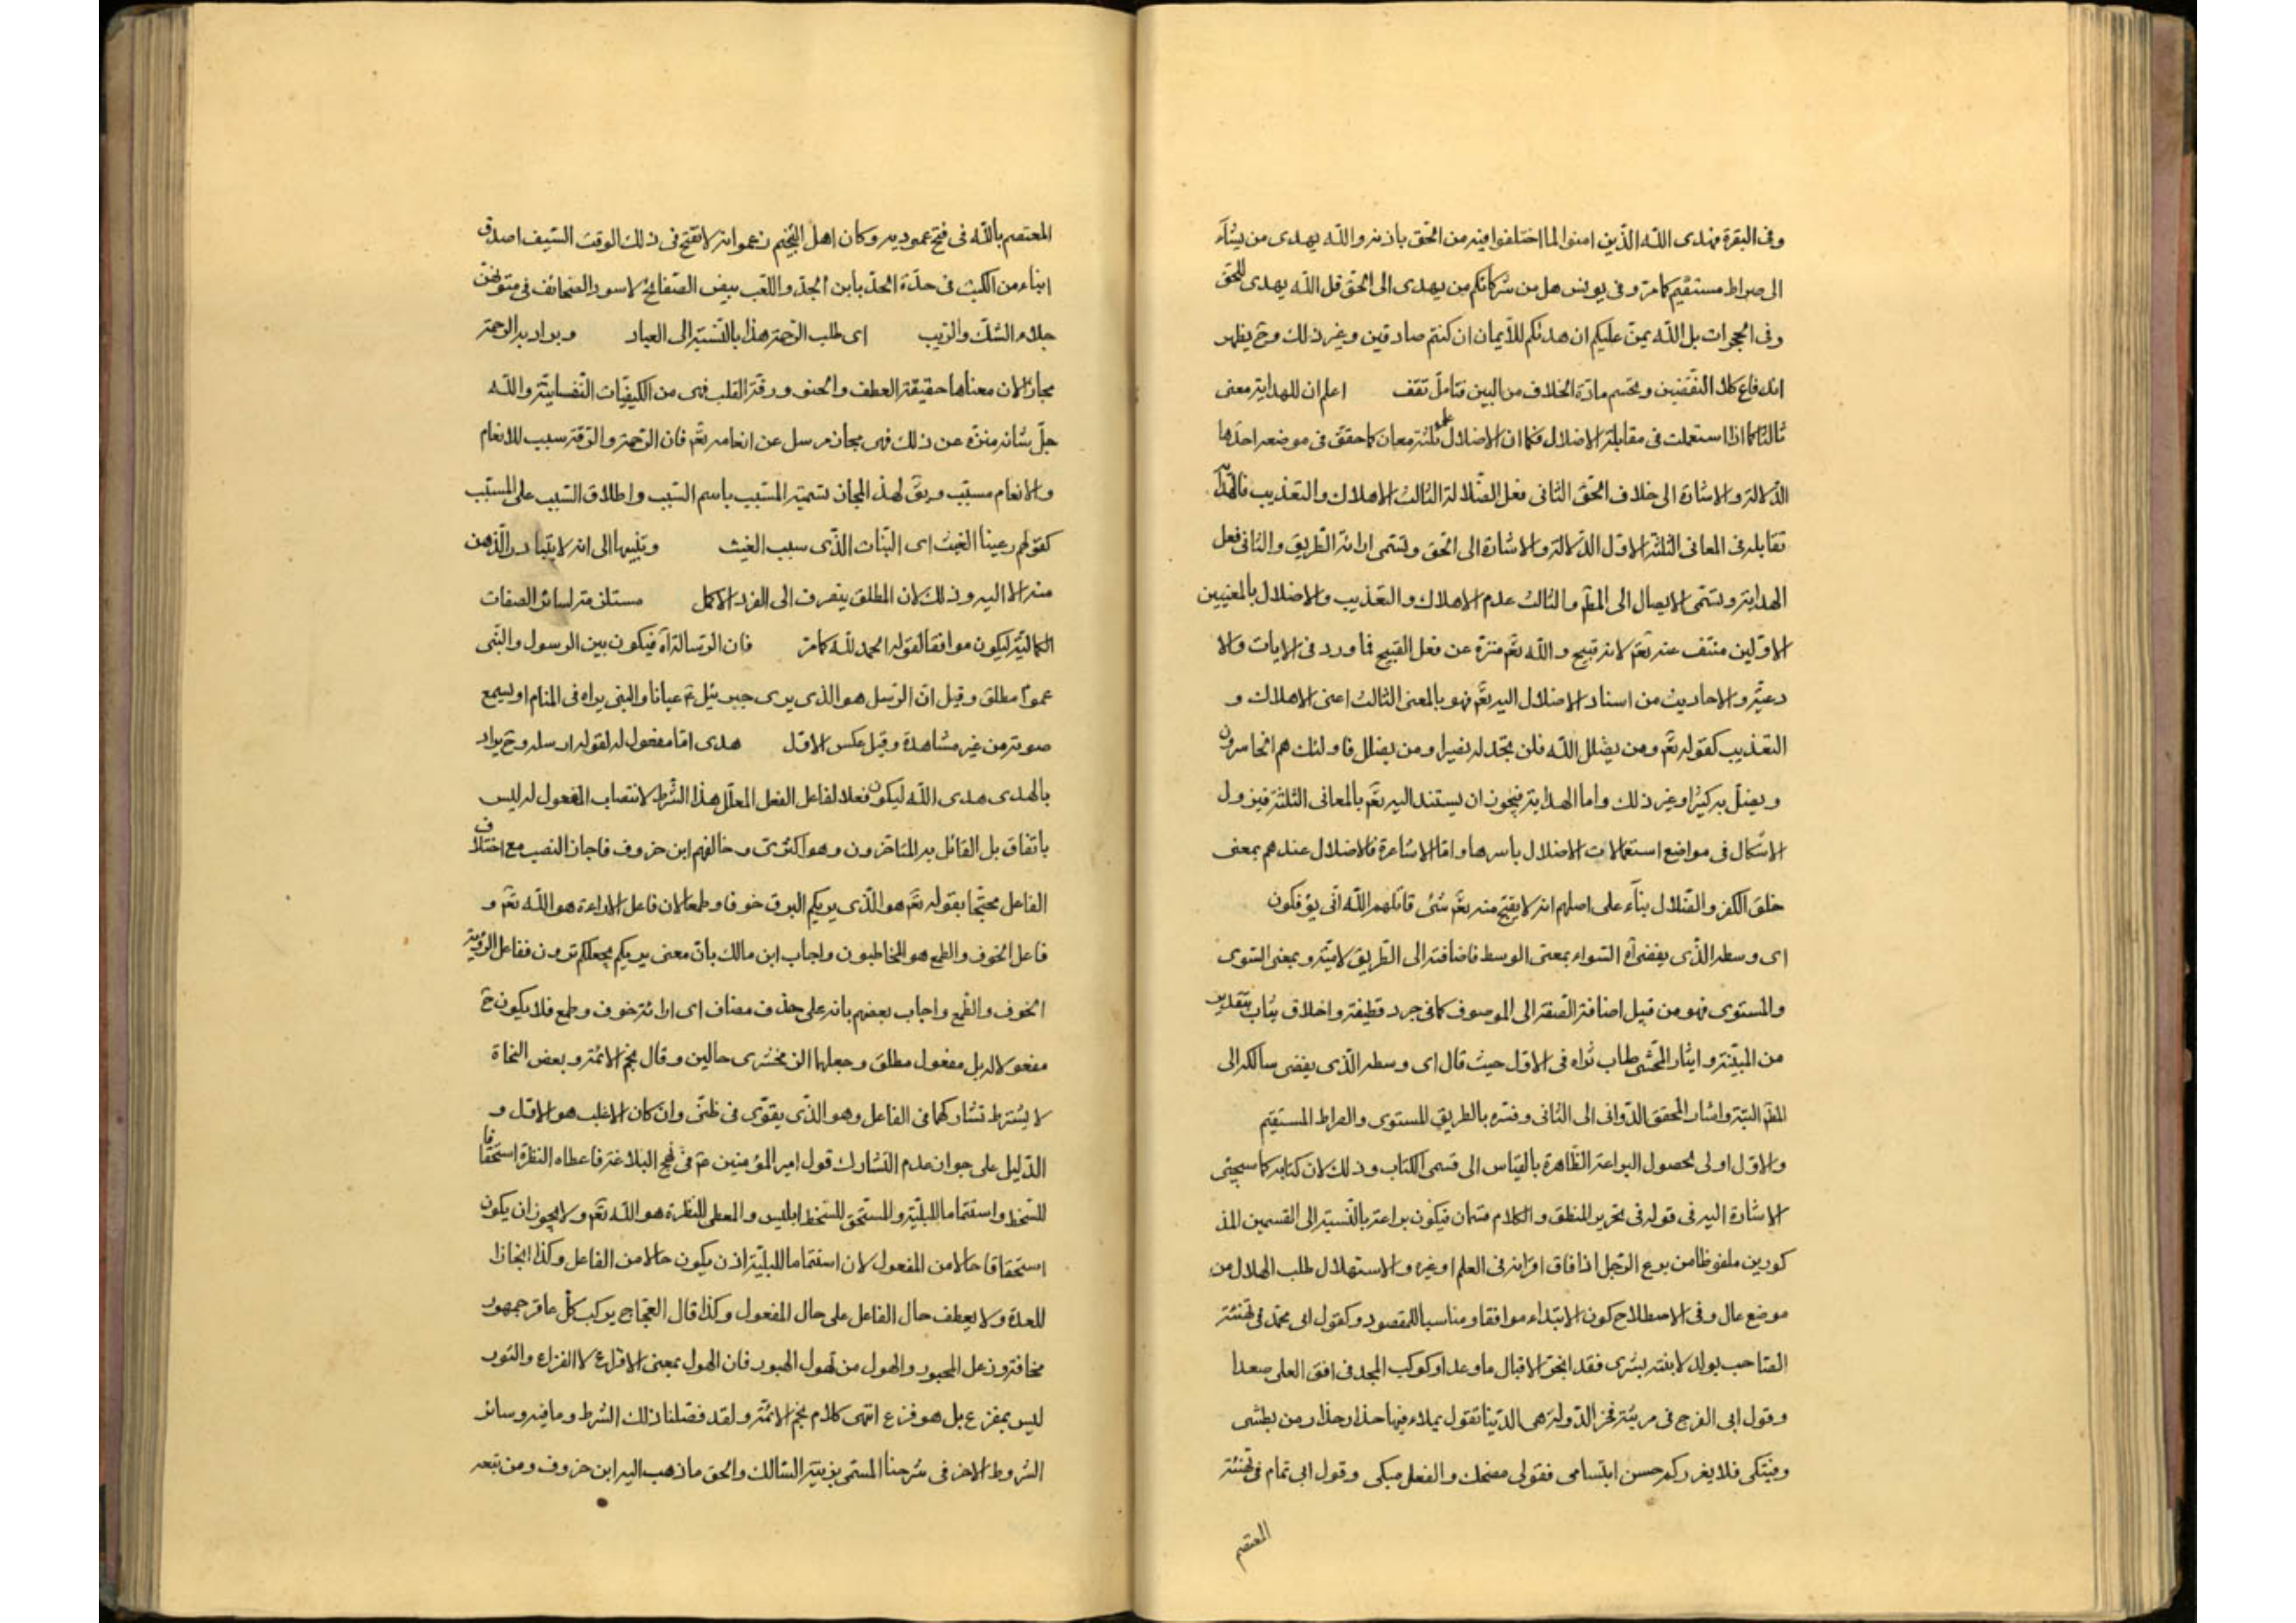 وفى البقرة فهدى الله الذين امنوا لما اختلفوا فيه من الحق باذنه والله يهدى من يشآء
الى صراط مستقيم كما مر وفى يونس هل من شركائكم من يهدى الى الحق قل الله يهدى للحق
وفى الحجرات بل الله يمن عليكم ان هدىكم للايمان ان كنتم صادقين وغير ذلك وح يظهر
اندفاع كلا النقضين وينحسم مادة الخلاف من البين فتامل تقف اعلم ان للهداية معنى
ثالثا كما اذا استعملت فى مقابلة الاضلال فكما ان الاضلال على ثلثة معان كما حقق فى موضعه احدها
الدلالة والاشارة الى خلاف الحق الثانى فعل الضلالة الثالث الاهلاك والتعذيب فالهداية
تقابله فى المعانى الثلثة الاول الدلالة والاشارة الى الحق وتسمى ارائة الطريق والثانى فعل
الهداية وتسمى الايصال الى المطم والثالث عدم الاهلاك والتعذيب والاضلال بالمعنيين
الاولين منتف عنه تعم لانه قبيح والله تعم منزه عن فعل القبيح فما ورد فى الايات والا
دعية والاحاديث من اسناد الاضلال اليه تعم فهو بالمعنى الثالث اعنى الاهلاك و
التعذيب كقوله تعم ومن يضلل الله فلن تجد له نصيرا ومن يضلل فاولئك هم الخاسرون
ويضل به كثيرا وغير ذلك واما الهداية فيجوز ان يستند اليه تعم بالمعانى الثلثة فيزول
الاشكال فى مواضع استعمالات الاضلال باسرها واما الاشاعرة فالاضلال عندهم بمعنى
خلق الكفر والضلال بنآء على اصلهم انه لا يقبح منه تعم شئ قاتلهم الله انى يؤفكون
اى وسطه الذى يفضى آه السواء بمعنى الوسط فاضافته الى الطريق لامية وبمعنى السوى
والمستوى فهو من قبيل اضافة الصفة الى الموصوف كما فى جرد قطيفة واخلاق ثياب بتقدير
من المبينة وايثار المحشى طاب ثراه فى الاول حيث قال اى وسطه الذى يفضى سالكه الى
المطم البتة واشار المحقق الدوانى الى الثانى وفسره بالطريق المستوى والصراط المستقيم
والاول اولى لحصول البراعة الظاهرة بالقياس الى قسمى الكتاب وذلك لان كتابه كما سيجيئ
الاشارة اليه فى قوله فى تحرير المنطق والكلام قسمان فيكون براعة بالنسبة الى القسمين المذ
كورين ملفوظا من برع الرجل اذا فاق اقرانه فى العلم او غيره والاستهلال طلب الهلال من
موضع عال وفى الاصطلاح كون الابتداء موافقا ومناسبا للمقصود وكقول ابى محمد فى تهنئة
الصاحب بولد لابنته بشرى فقد انجز الاقبال ما وعدا وكوكب المجد فى افق العلى صعدا
وقول ابى الفرج فى مرثية فخر الدولة هى الدنيا تقول بملاء فيها حذار حذار من بطشى
وفتكى فلا يغرركم حسن ابتسامى فقولى مضحك والفعل مبكى وقول ابى تمام فى تهنئة
المعتصم
المعتصم بالله فى فتح عموديه وكان اهل التنجيم زعموا انه لا تفتح فى ذلك الوقت السيف اصدق
انباء من الكتب فى حدة الحد بابن الجد واللعب بيض الصفائح لا سود الصحائف فى متونهن
جلاء الشك والريب اى طلب الرحمة هذا بالنسبة الى العباد ويراد به الرحمة
مجازا لان معناها حقيقة العطف والحنو ورقة القلب فهى من الكيفيات النفسانية والله
جل شانه منزه عن ذلك فهى مجاز مرسل عن انعامه تعم فان الرحمة والرقة سبب للانعام
والانعام مسبب ويق لهذ المجاز تسمية المسبب باسم السبب واطلاق السبب على المسبب
كقولهم رعينا الغيث اى النبات الذى سببه الغيث وتنبيها الى انه لا يتبادر الذهن
منه الا اليه وذلك لان المطلق ينصرف الى الفرد الاكمل مستلزمة لسائر الصفات
الكمالية ليكون موافقا لقوله الحمد لله كما مر فان الرسالة آه فيكون بين الرسول والنبى
عموم مطلق وقيل ان الرسل هو الذى يرى جبرئيل ع عيانا والنبى يراه فى المنام او يسمع
صوته من غير مشاهدة وقيل عكس الاول هدى اما مفعول له لقوله ارسله وح يراد
بالهدى هدى الله ليكون فعلا لفاعل الفعل المعلل هذا الشرط لانتصاب المفعول له ليس
باتفاق بل القائل به المتاخرون وهو اكثرى وخالفهم ابن خروف فاجاز النصب مع اختلاف
الفاعل محتجا بقوله تعم هو الذى يريكم البرق خوفا وطمعا لان فاعل الاراءة هو الله تعم و
فاعل الخوف والطمع هو المخاطبون واجاب ابن مالك بان معنى يريكم يجعلكم ترون ففاعل الرؤية
الخوف والطمع واجاب بعضهم بانه على حذف مضاف اى ارائة خوف وطمع فلا يكون ح
مفعولا له بل مفعول مطلق وجعلهما الزمخشرى حالين وقال نجم الائمة وبعض النحاة
لا يشترط تشاركهما فى الفاعل وهو الذى يقوى فى ظنى وان كان الاغلب هو الاول و
الدليل على جواز عدم التشارك قول امير المؤمنين ع فى نهج البلاغة فاعطاه النظرة استحقاقا
للسخط واستتماما للبلية والمستحق للسخط ابليس والمعطى للنظرة هو الله تعم ولا يجوز ان يكون
استحقاقا حالا من المفعول لان استتماما للبلية اذن يكون حالا من الفاعل وكذا انجازا
للعدة ولا يعطف حال الفاعل على حال المفعول وكذا قال العجاج يركب كل عاقر جمهور
مخافة وزعل المحبور والهول من تهول الهبور فان الهول بمعنى الافزاع لا الفزاع والثور
ليس بمفزع بل هو فزع انتهى كلام نجم الائمة ولقد فصلنا ذلك الشرط وما فيه وسائر
الشروط الاخر فى شرحنا المسمى بزينة السالك والحق ما ذهب اليه ابن خروف ومن تبعه